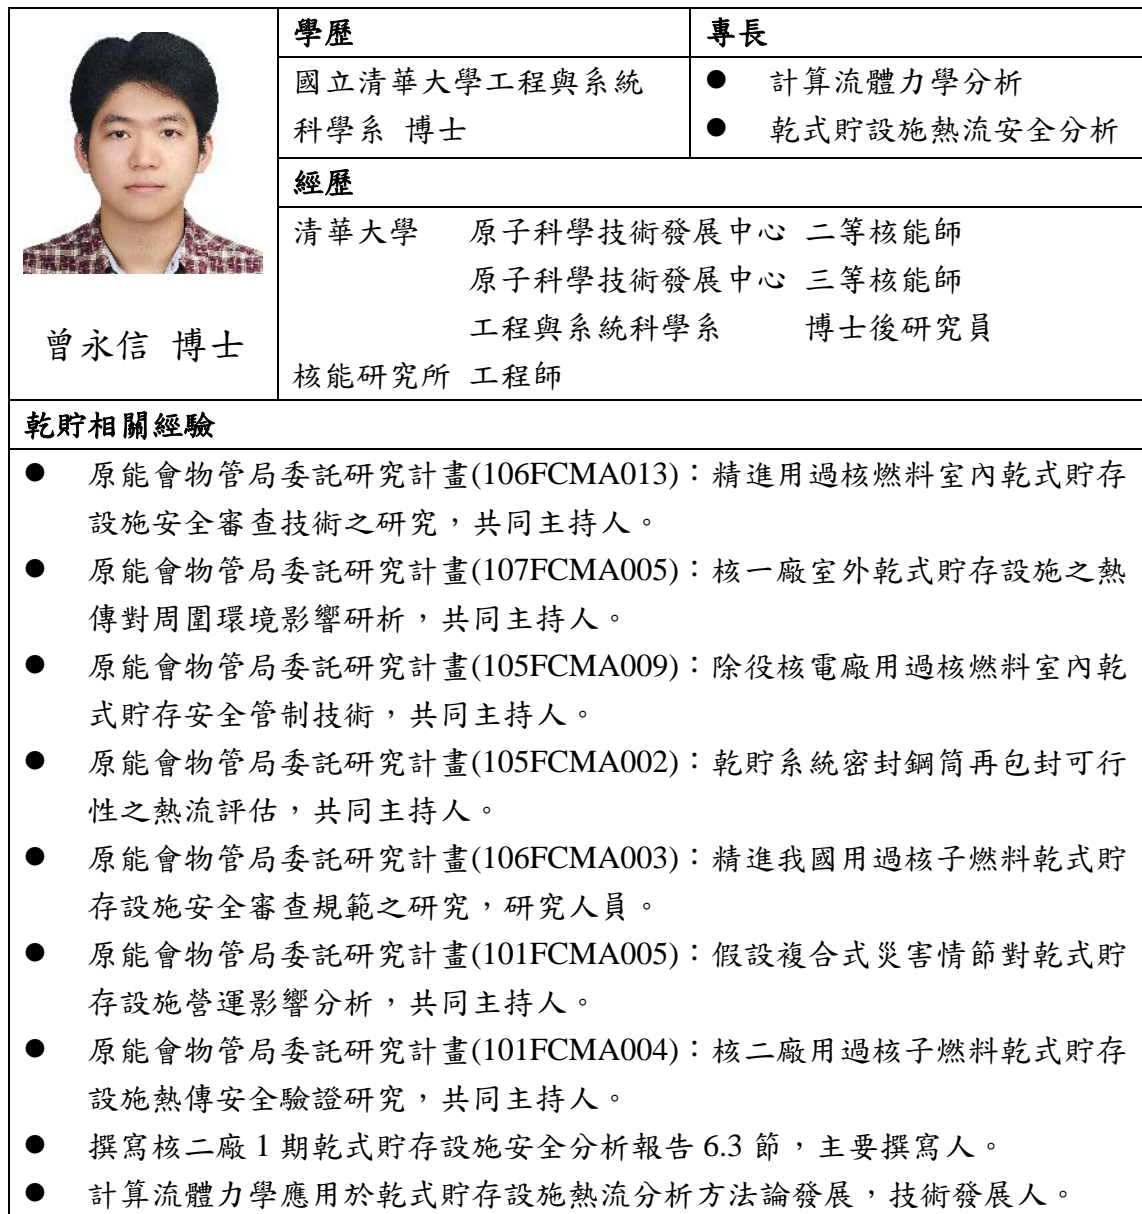 學歷
專長
國立清華大學工程與系統
科學系 博士
● 計算流體力學分析
● 乾式貯設施熱流安全分析
經歷
清華大學 原子科學技術發展中心 二等核能師
原子科學技術發展中心 三等核能師
工程與系統科學系 博士後研究員
核能研究所 工程師
曾永信 博士
乾貯相關經驗
● 原能會物管局委託研究計畫(106FCMA013):精進用過核燃料室內乾式貯存
設施安全審查技術之研究,共同主持人。
● 原能會物管局委託研究計畫(107FCMA005):核一廠室外乾式貯存設施之熱
傳對周圍環境影響研析,共同主持人。
● 原能會物管局委託研究計畫(105FCMA009):除役核電廠用過核燃料室內乾
式貯存安全管制技術,共同主持人。
● 原能會物管局委託研究計畫(105FCMA002):乾貯系統密封鋼筒再包封可行
性之熱流評估,共同主持人。
● 原能會物管局委託研究計畫(106FCMA003):精進我國用過核子燃料乾式貯
存設施安全審查規範之研究,研究人員。
● 原能會物管局委託研究計畫(101FCMA005):假設複合式災害情節對乾式貯
存設施營運影響分析,共同主持人。
● 原能會物管局委託研究計畫(101FCMA004):核二廠用過核子燃料乾式貯存
設施熱傳安全驗證研究,共同主持人。
● 撰寫核二廠 1 期乾式貯存設施安全分析報告 6.3 節,主要撰寫人。
● 計算流體力學應用於乾式貯存設施熱流分析方法論發展,技術發展人。